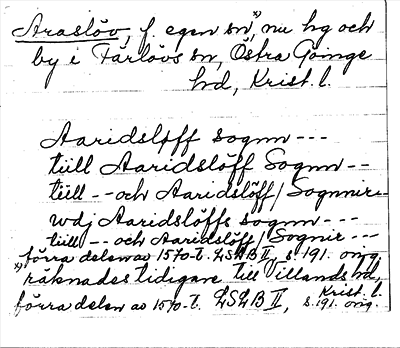 Araslöv, f. egen sn*), nu hg och
by i Färlövs sn, Östra Göinge
hd, Krist. l.
Aaridsløff sognn ---
tiill Aaridslöff Sognn --
tiill -- och Aaridslöff / Sognnir --
wdj Aaridslöffs sogmn ---
tiill -- och Aaridslöff / Sognir ---
förra delen av 1570-t. LSLB II, s. 191. orig.
*) räknades tidigare till Villands hd,
Krist. l.
förra delen av 1570-t. LSLB II, s. 191. orig.